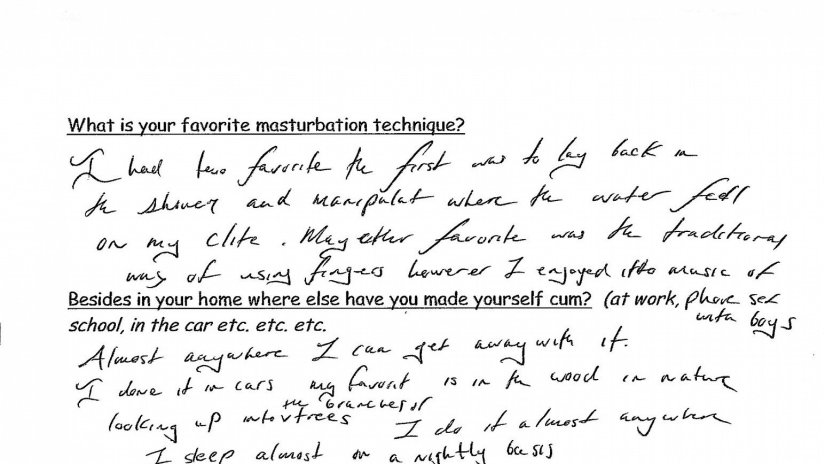 What is your favorite masturbation technique?
I had two favorite the first was to lay back in
the shower and manipulat where the water fell
on my clite. My other favorite was the traditional
way of using fingers however I enjoyed it to music of
Besides in your home where else have you made yourself cum? (at work, phone sex
school, in the car etc. etc. etc. with boys
Almost anywhere I can get away with it.
I done it in cars my favorit is in the wood in nature
the branches of
looking up into trees I do it almost anywhere
I sleep almost on a nightly basis